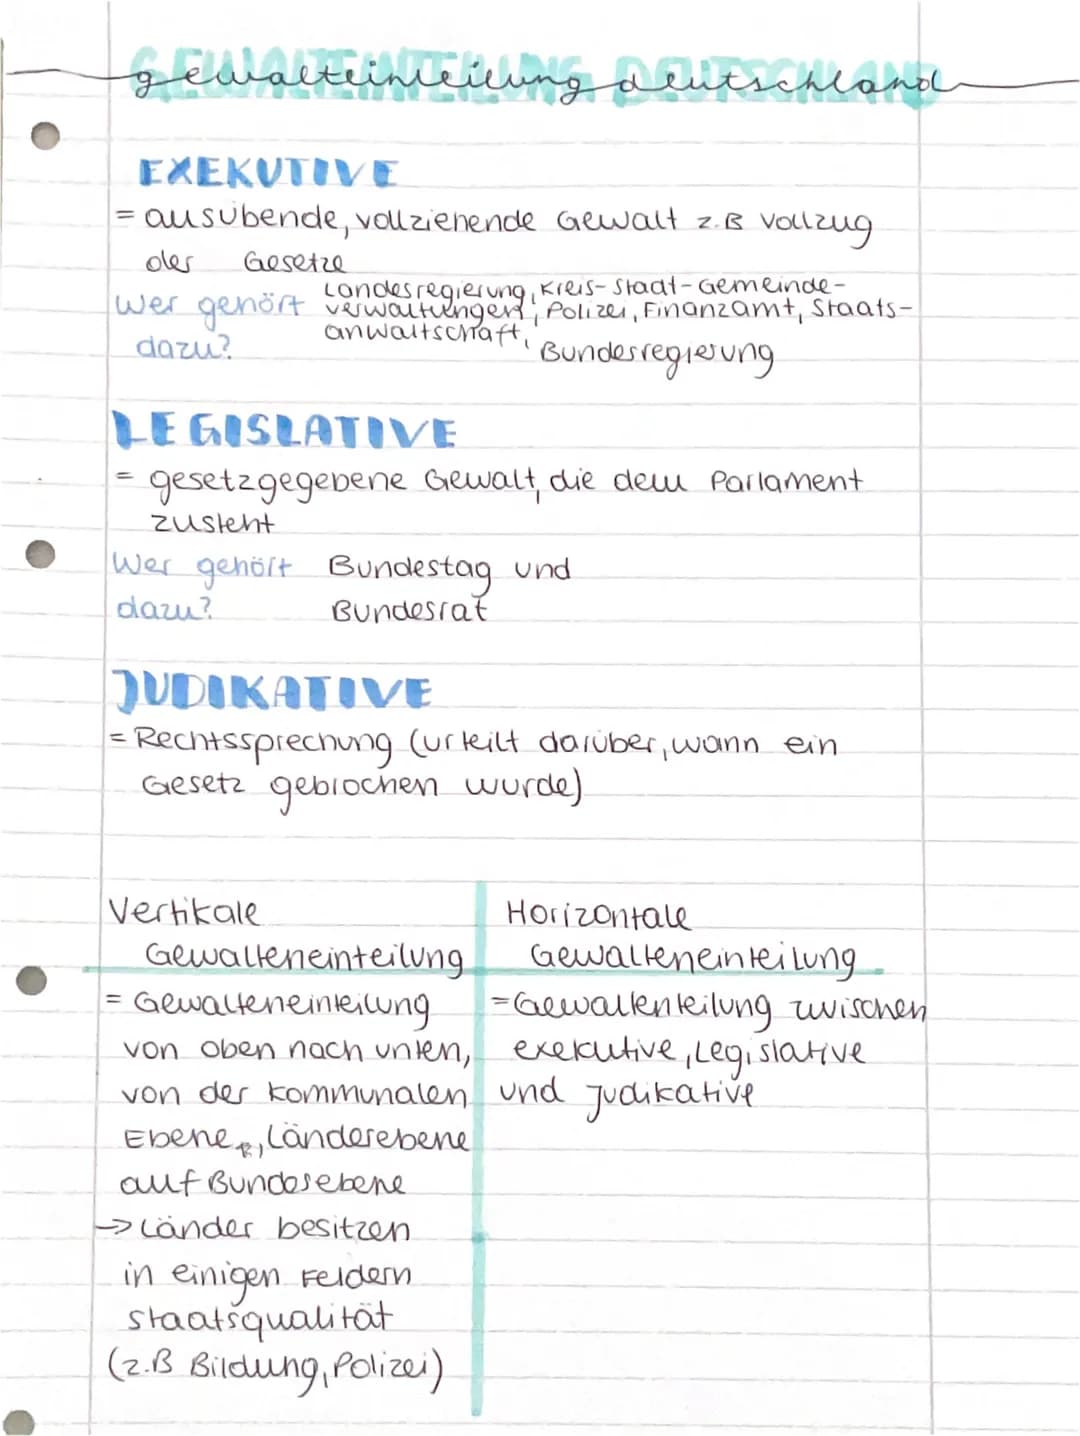 gewalteinteilung deutschland
EXEKUTIVE
= ausübende, vollziehende Gewalt z.B Vollzug
der Gesetze
Wer gehört dazu?
Landesregierung, Kreis-Stadt-Gemeinde-
verwaltungen, Polizei, Finanzamt, Staats-
anwaltschaft,
Bundesregierung
LEGISLATIVE
= gesetzgegebene Gewalt, die dem Parlament
zusteht
Wer gehört Bundestag und
dazu? Bundesrat
JUDIKATIVE
= Rechtssprechung (urteilt darüber, wann ein
Gesetz gebrochen wurde)
Vertikale
Gewalteneinteilung
= Gewalteneinteilung
von oben nach unten,
von der kommunalen
Ebene, Länderebene
auf Bundesebene
-> Länder besitzen
in einigen Feldern
staatsqualität
(z.B Bildung, Polizei)
Horizontale
Gewalteneinteilung
= Gewaltenteilung zwischen
exekutive, Legislative
und Judikative